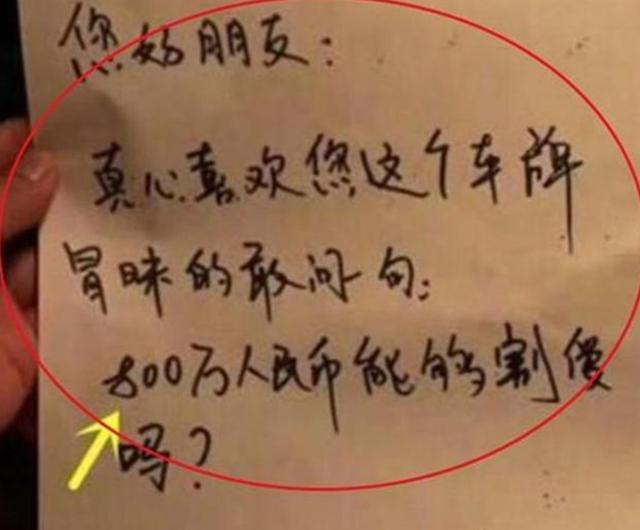 您好朋友:
真心喜欢您这个车牌
冒昧的敢问句:
800万人民币能够割爱
吗?